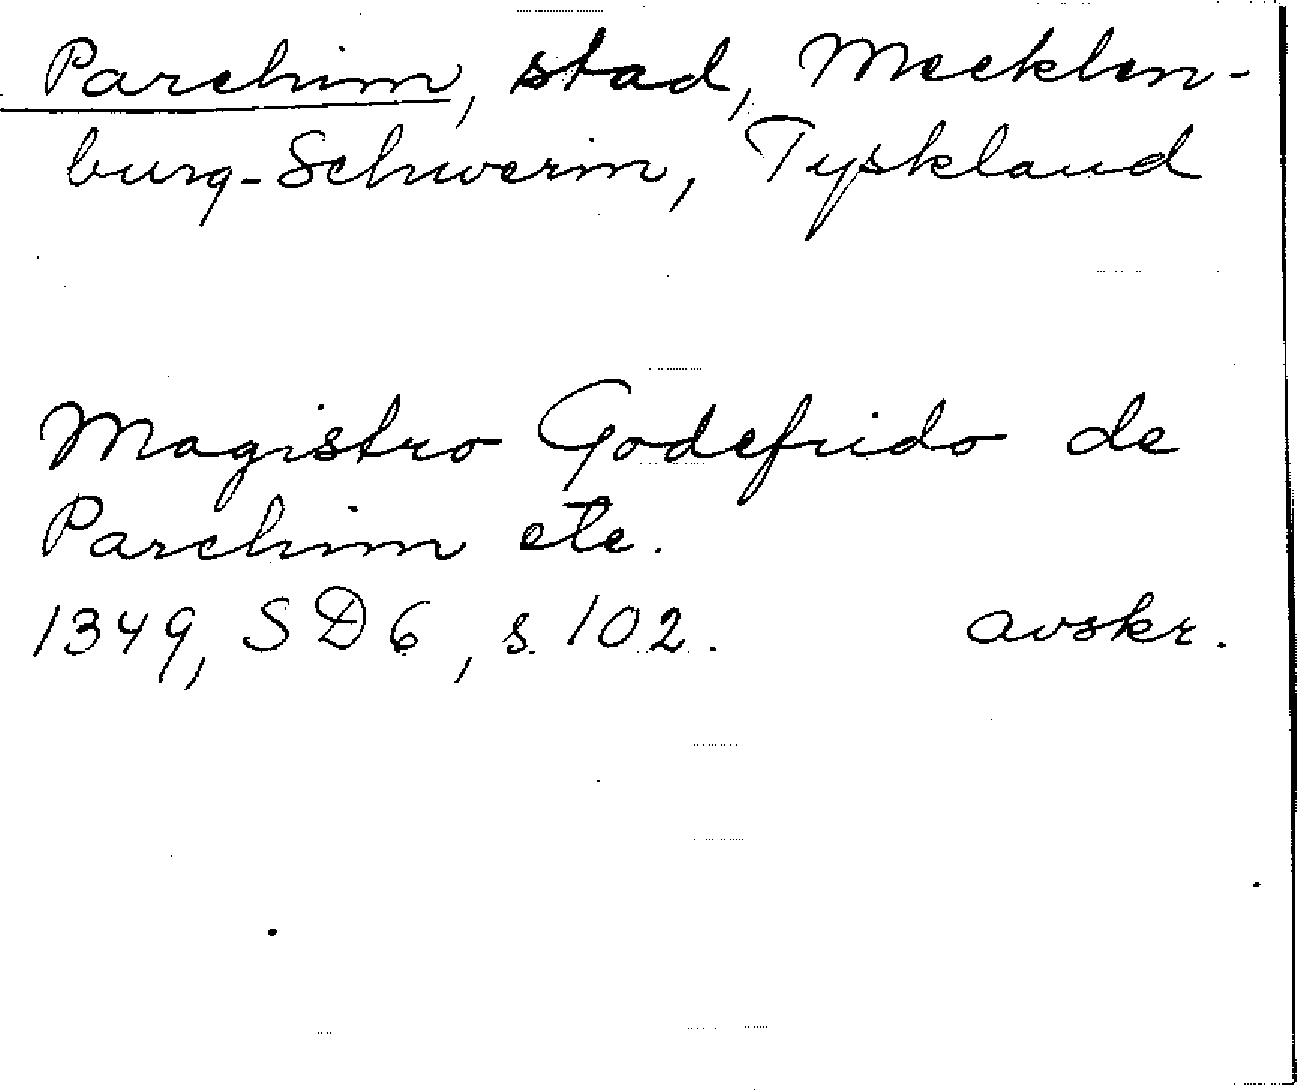 Parchim, stad, Mecklen-
burg-Schwerin, Tyskland
Magistro Godefrido de
Parchim etc.
1349, SD6, s 102. avskr.